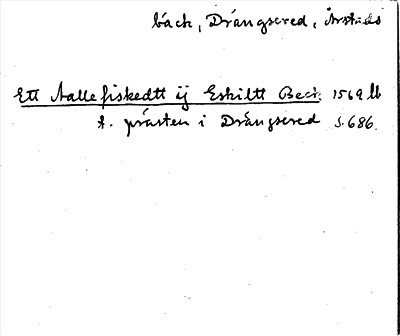 bäck, Drängsered, Årstads
Ett Aallefiskedtt ij Eskiltt Beck. 1569 lb
f. prästen i Drängsered s. 686.